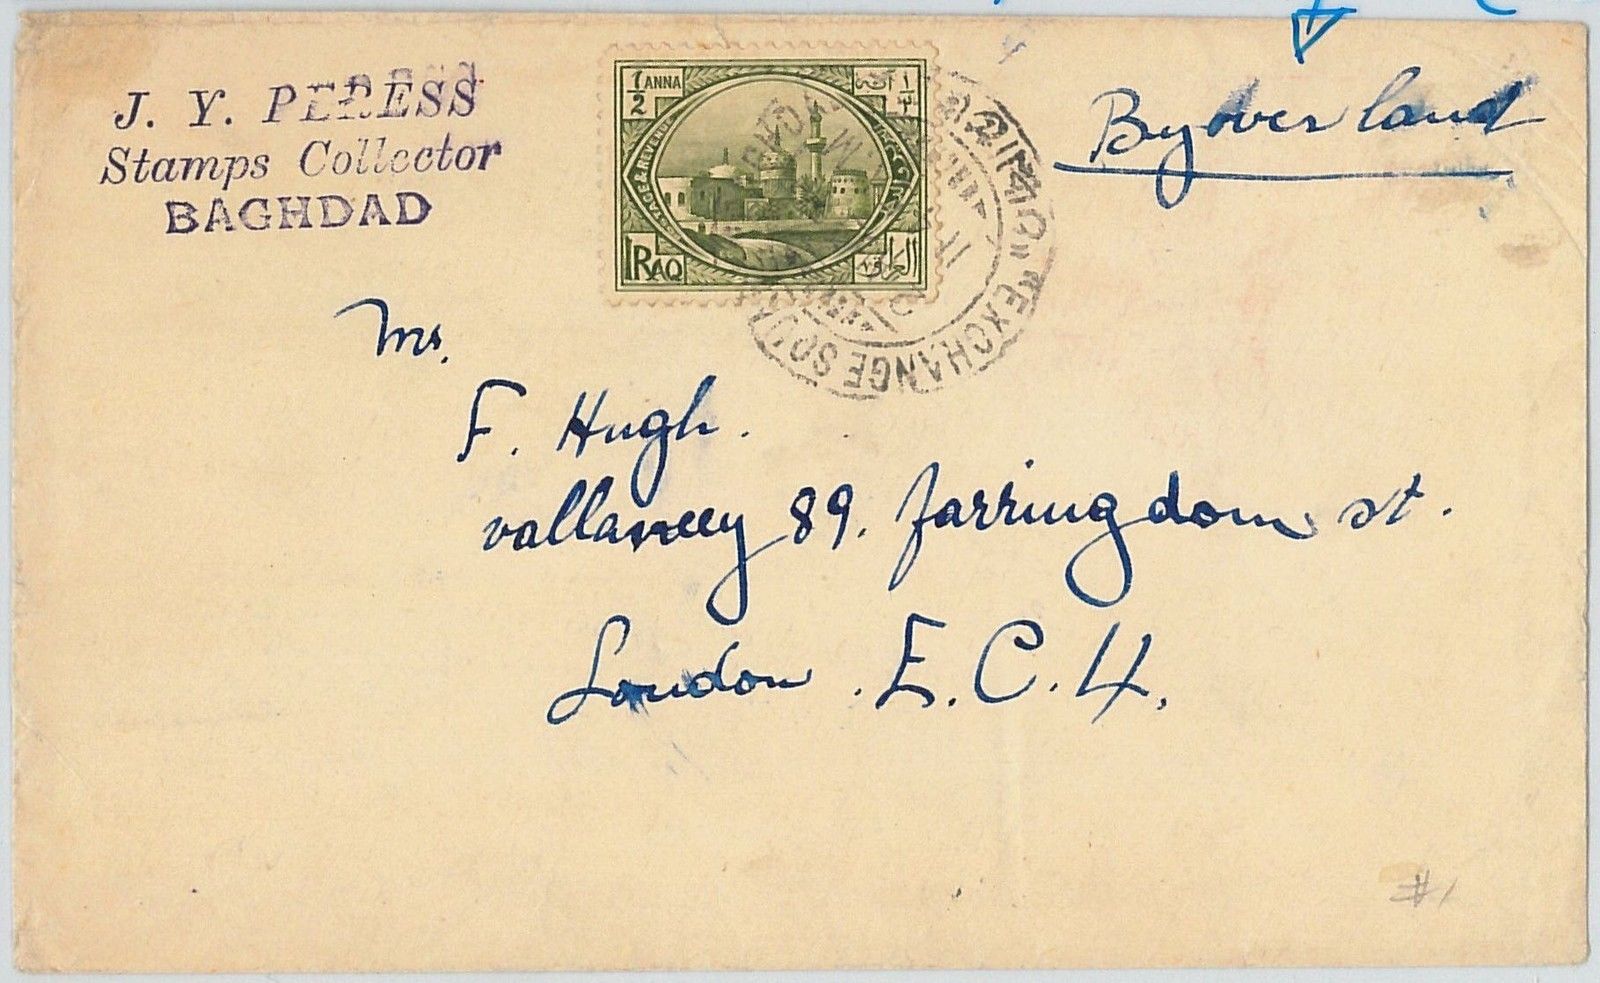 J. Y. PERESS
Stamps Collector
BAGHDAD
1/2 ANNA
POSTAGE & REVENUE
IRAQ
"EXCHANGE SQUARE
By overland
Mr.
F. Hugh.
vallancey 89. farringdom st.
London. E.C.4.
#1